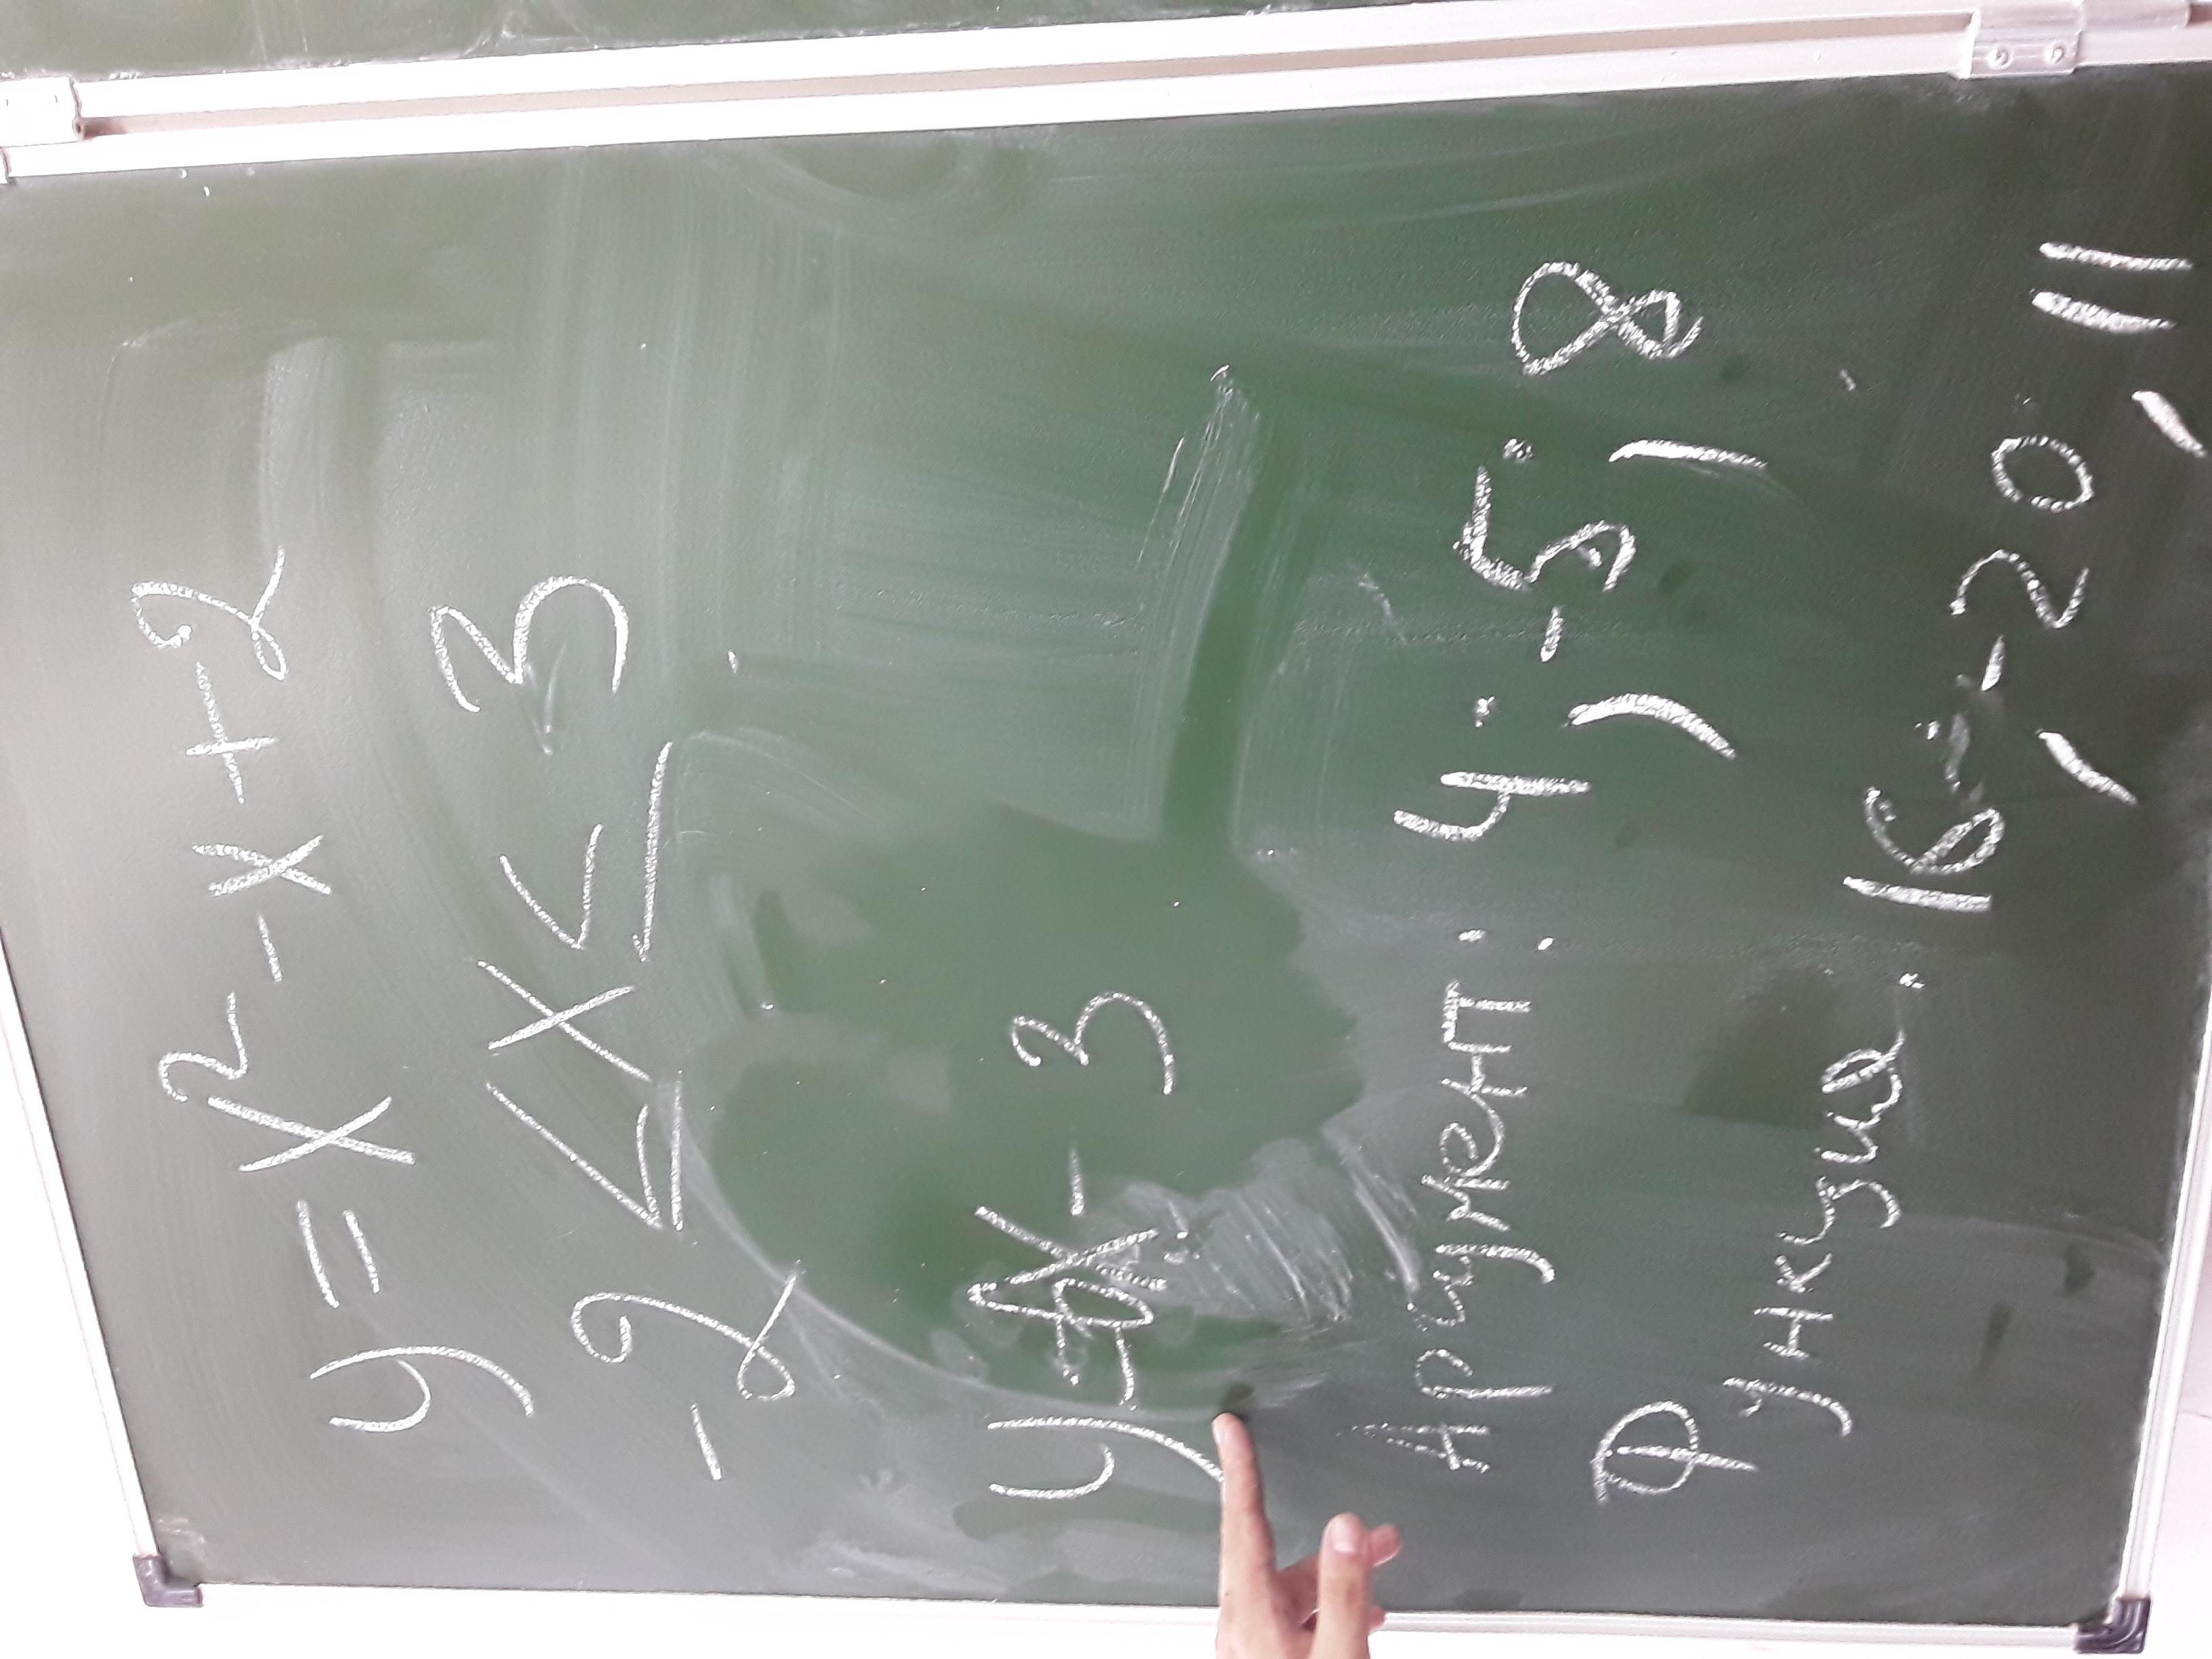 y = x² - x + 2
-2 ≤ x ≤ 3
y = x - 3
Аргумент: 4; -5; 8
Функция: 16; -20, 11